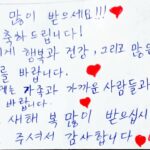 많이 받으세요!!!
축하드립니다!
게 행복과 건강, 그리고 많은
를 바랍니다.
에는 가족과 가까운 사람들과
바랍니다.
새해 복 많이 받으십시
주셔서 감사합니다